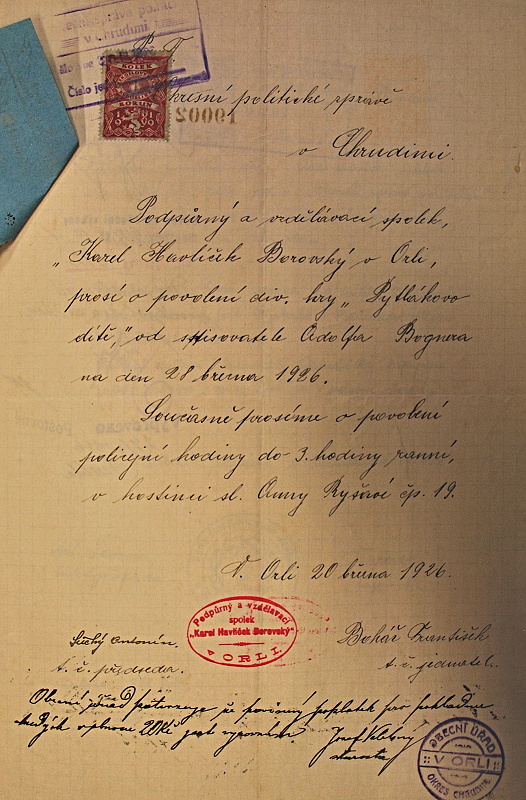 správa polit
v Chrudimi
Číslo je
KOLEK
KORUN
10002
P. T.
Okresní politické správě
v Chrudimi.
Podpůrný a vzdělávací spolek,
„Karel Havlíček Borovský v Orli,
prosí o povolení div. hry „Pytlákovo
dítě,“ od spisovatele Adolfa Bognera
na den 28 března 1926.
Současně prosíme o povolení
policejní hodiny do 3. hodiny ranní,
v hostinci sl. Anny Ryšavé čp. 19.
V Orli 20 března 1926.
Podpůrný a vzdělávací
spolek
„Karel Havlíček Borovský“
v ORLI
Suchý Antonín.
t. č. předseda.
Bohář František
t. č. jednatel.
Obecní úřad potvrzuje že povinný poplatek pro pokladnu
20 Kč jest
Josef
starosta
OBECNÍ ÚŘAD
V ORLI
OKRES CHRUDIM